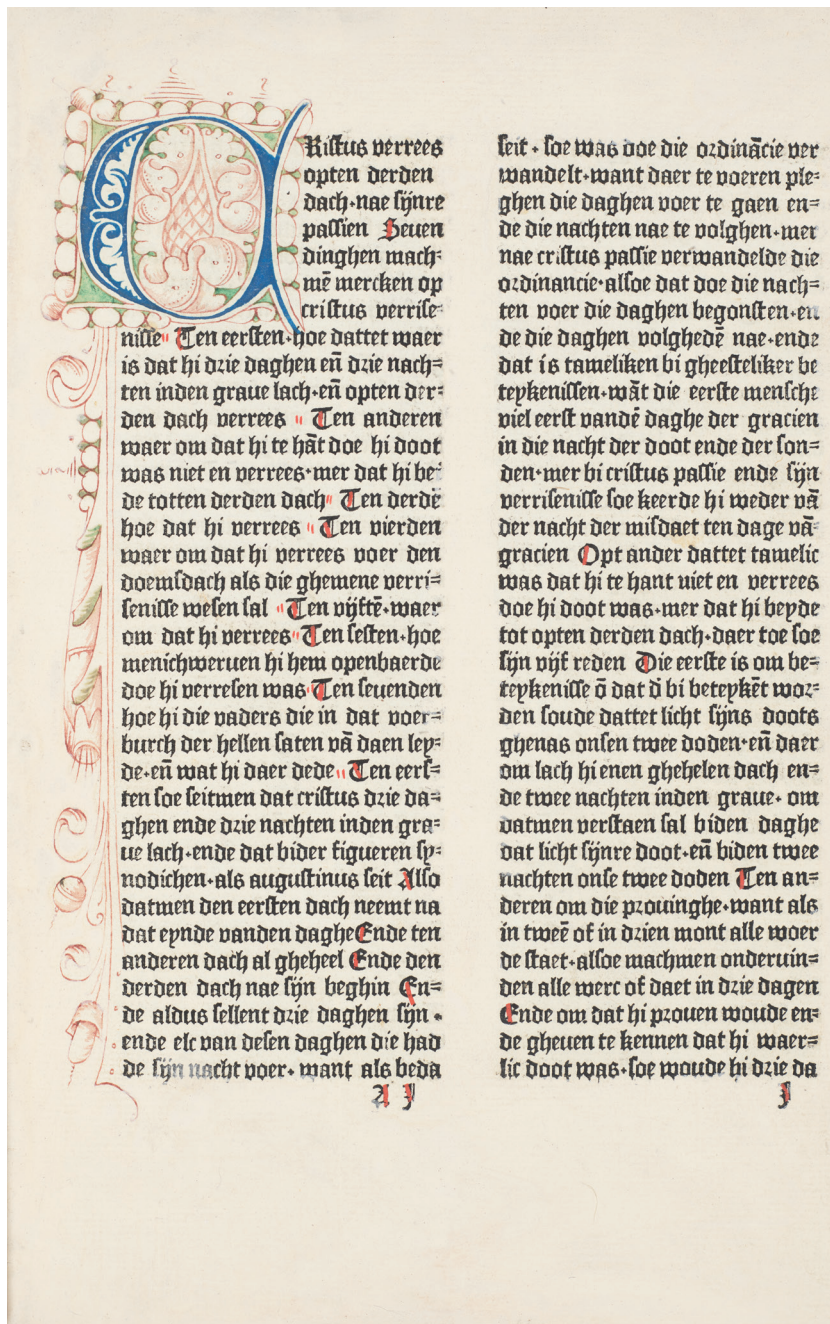 CRistus verrees
opten derden
dach·nae sijnre
passien Seuen
dinghen mach-
mē mercken op
cristus verrise-
nisse Ten eersten·hoe dattet waer
is dat hi drie daghen eñ drie nach=
ten inden graue lach·eñ opten der=
den dach verrees Ten anderen
waer om dat hi te hāt doe hi doot
was niet en verrees·mer dat hi be-
de totten derden dach Ten derdē
hoe dat hi verrees Ten vierden
waer om dat hi verrees voer den
doemsdach als die ghemene verri=
senisse wesen sal Ten vijftē·waer
om dat hi verrees Ten sesten·hoe
menichweruen hi hem openbaerde
doe hi verresen was Ten seuenden
hoe hi die vaders die in dat voer=
burch der hellen saten vā daen ley-
de·eñ wat hi daer dede Ten eers-
ten soe seitmen dat cristus drie da-
ghen ende drie nachten inden gra-
ue lach·ende dat bider figueren sy-
nodichen·als augustinus seit Also
datmen den eersten dach neemt na
dat eynde vanden daghe Ende ten
anderen dach al gheheel Ende den
derden dach nae sijn beghin En=
de aldus sellent drie daghen sijn·
ende elc van desen daghen die had
de sijn nacht voer· want als beda
A J
seit · soe was doe die ordināčie ver
wandelt·want daer te voeren ple=
ghen die daghen voer te gaen en=
de die nachten nae te volghen·mer
nae cristus passie verwandelde die
ordinancie·alsoe dat doe die nach=
ten voer die daghen begonsten·en
de die daghen volghedē nae·ende
dat is tameliken bi gheesteliker be
teykenissen·wāt die eerste mensche
viel eerst vandē daghe der gracien
in die nacht der doot ende der son-
den·mer bi cristus passie ende sijn
verrisenisse soe keerde hi weder vā
der nacht der misdaet ten dage vā
gracien Opt ander dattet tamelic
was dat hi te hant niet en verrees
doe hi doot was·mer dat hi beyde
tot opten derden dach·daer toe soe
sijn vijf reden Die eerste is om be=
teykenisse ō dat d̄ bi beteykēt wor-
den soude dattet licht sijns doots
ghenas onsen twee doden·eñ daer
om lach hi enen ghehelen dach en=
de twee nachten inden graue· om
datmen verstaen sal biden daghe
dat licht sijnre doot·eñ biden twee
nachten onse twee doden Ten an=
deren om die prouinghe·want als
in tweē of in drien mont alle woer
de staet·alsoe machmen onderuin=
den alle werc of daet in drie dagen
Ende om dat hi prouen woude en=
de gheuen te kennen dat hi waer=
lic doot was·soe woude hi drie da
J